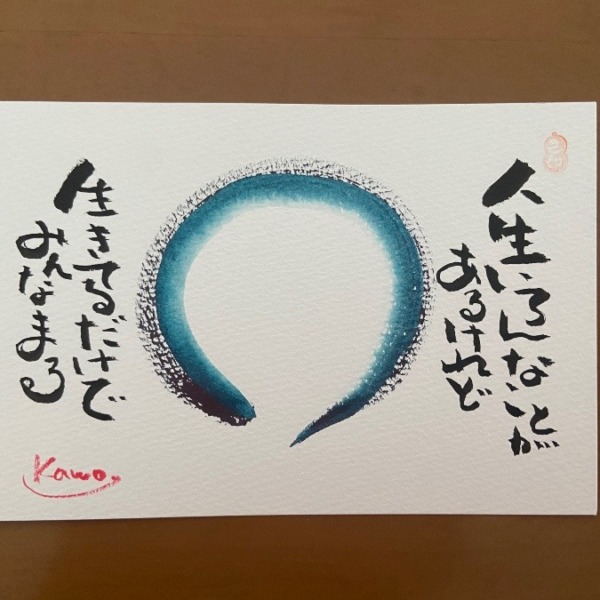 人生いろんなことが
あるけれど
生きてるだけで
みんなまる
Kawo.